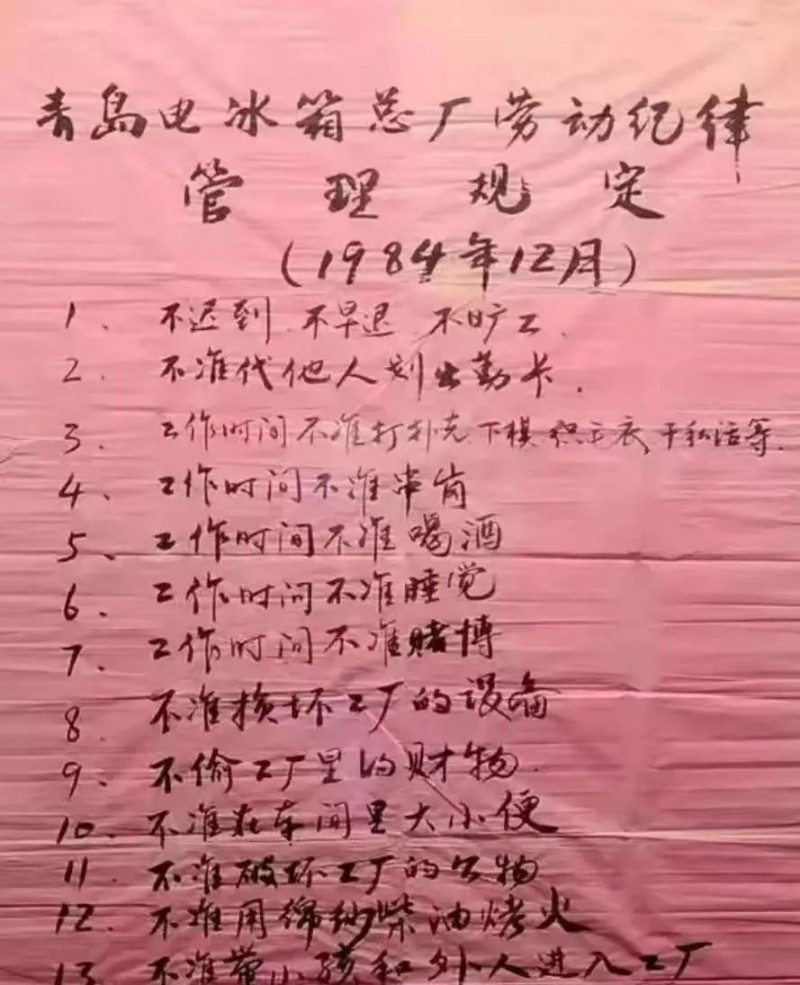 青岛电冰箱总厂劳动纪律
管理规定
(1984年12月)
1、不迟到 不早退 不旷工.
2. 不准代他人划出勤卡.
3. 工作时间不准打扑克 下棋 织毛衣 干私活等.
4、工作时间不准串岗
5、工作时间不准喝酒
6. 工作时间不准睡觉
7. 工作时间不准赌博
8. 不准损坏工厂的设备
9. 不偷工厂里的财物.
10、不准在车间里大小便
11. 不准破坏工厂的公物
12. 不准用绵纱柴油烤火
13 不准带小孩和外人进入工厂